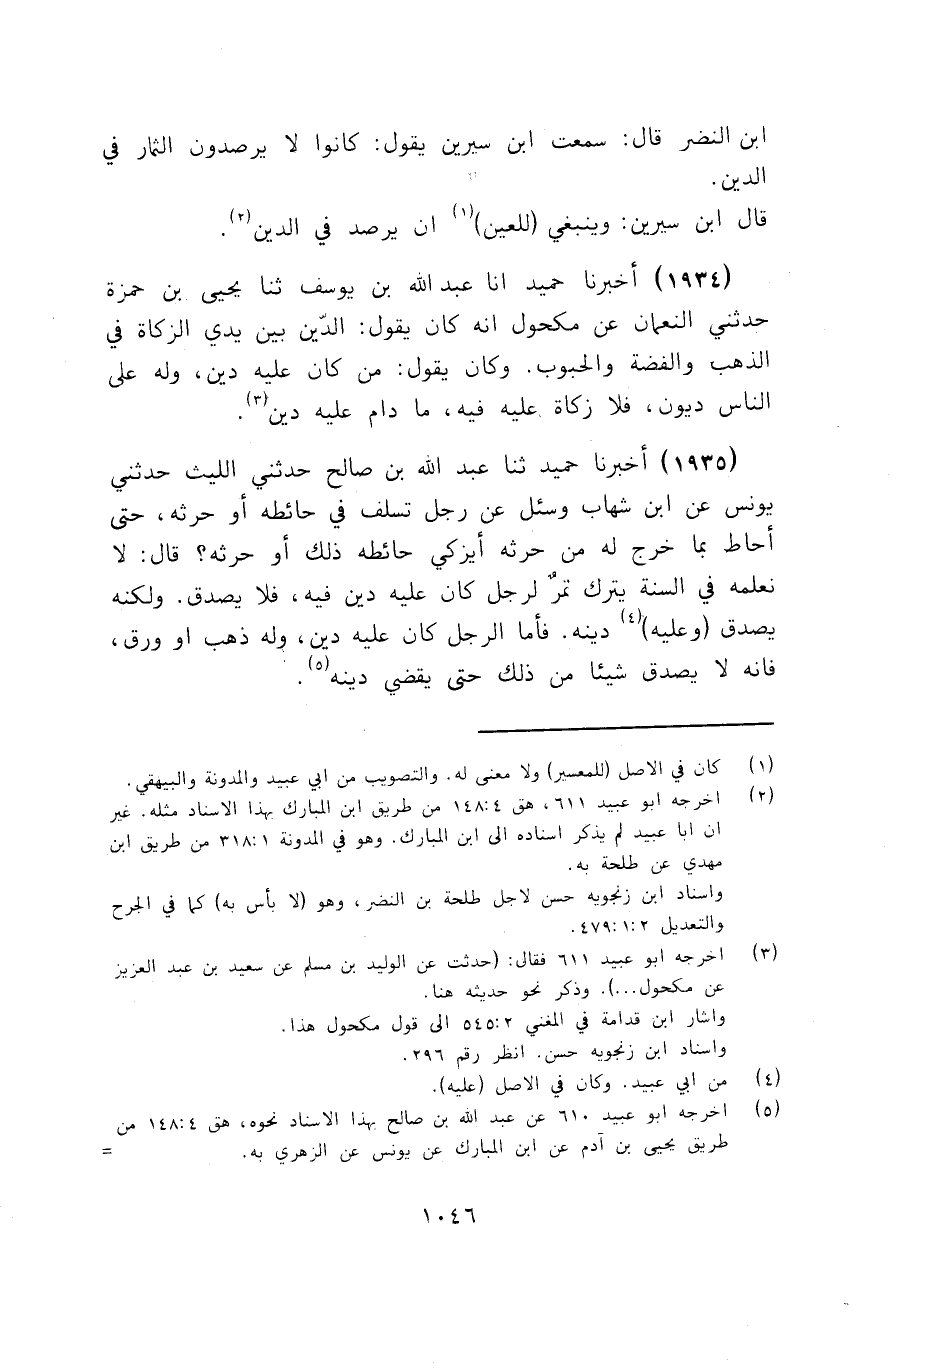 ابن النضر قال: سمعت ابن سيرين يقول: كانوا لا يرصدون الثمار في
الدين.
قال ابن سيرين: وينبغي (للعين)(١) ان يرصد في الدين(٢).
(١٩٣٤) أخبرنا حميد انا عبد الله بن يوسف ثنا يحيى بن حمزة
حدثني النعمان عن مكحول انه كان يقول: الدّين بين يدي الزكاة في
الذهب والفضة والحبوب. وكان يقول: من كان عليه دين، وله على
الناس ديون، فلا زكاة عليه فيه، ما دام عليه دين(٣).
(١٩٣٥) أخبرنا حميد ثنا عبد الله بن صالح حدثني الليث حدثني
يونس عن ابن شهاب وسئل عن رجل تسلف في حائطه أو حرثه، حتى
أحاط بما خرج له من حرثه أيزكي حائطه ذلك أو حرثه؟ قال: لا
نعلمه في السنة يترك تمرٌ لرجل كان عليه دين فيه، فلا يصدق. ولكنه
يصدق (وعليه)(٤) دينه. فأما الرجل كان عليه دين، وله ذهب او ورق،
فانه لا يصدق شيئا من ذلك حتى يقضي دينه(٥).
(١) كان في الاصل (للمعسير) ولا معنى له. والتصويب من ابي عبيد والمدونة والبيهقي.
(٢) اخرجه ابو عبيد ٦١١، هق ١٤٨:٤ من طريق ابن المبارك بهذا الاسناد مثله. غير
ان ابا عبيد لم يذكر اسناده الى ابن المبارك. وهو في المدونة ٣١٨:١ من طريق ابن
مهدي عن طلحة به.
واسناد ابن زنجويه حسن لاجل طلحة بن النضر، وهو (لا بأس به) كما في الجرح
والتعديل ٤٧٩:١:٢.
(٣) اخرجه ابو عبيد ٦١١ فقال: (حدثت عن الوليد بن مسلم عن سعيد بن عبد العزيز
عن مكحول...). وذكر نحو حديثه هنا.
واشار ابن قدامة في المغني ٥٤٥:٢ الى قول مكحول هذا.
واسناد ابن زنجويه حسن. انظر رقم ٢٩٦.
(٤) من ابي عبيد. وكان في الاصل (عليه).
(٥) اخرجه ابو عبيد ٦١٠ عن عبد الله بن صالح بهذا الاسناد نحوه، هق ١٤٨:٤ من
طريق يحيى بن آدم عن ابن المبارك عن يونس عن الزهري به. =
١٠٤٦